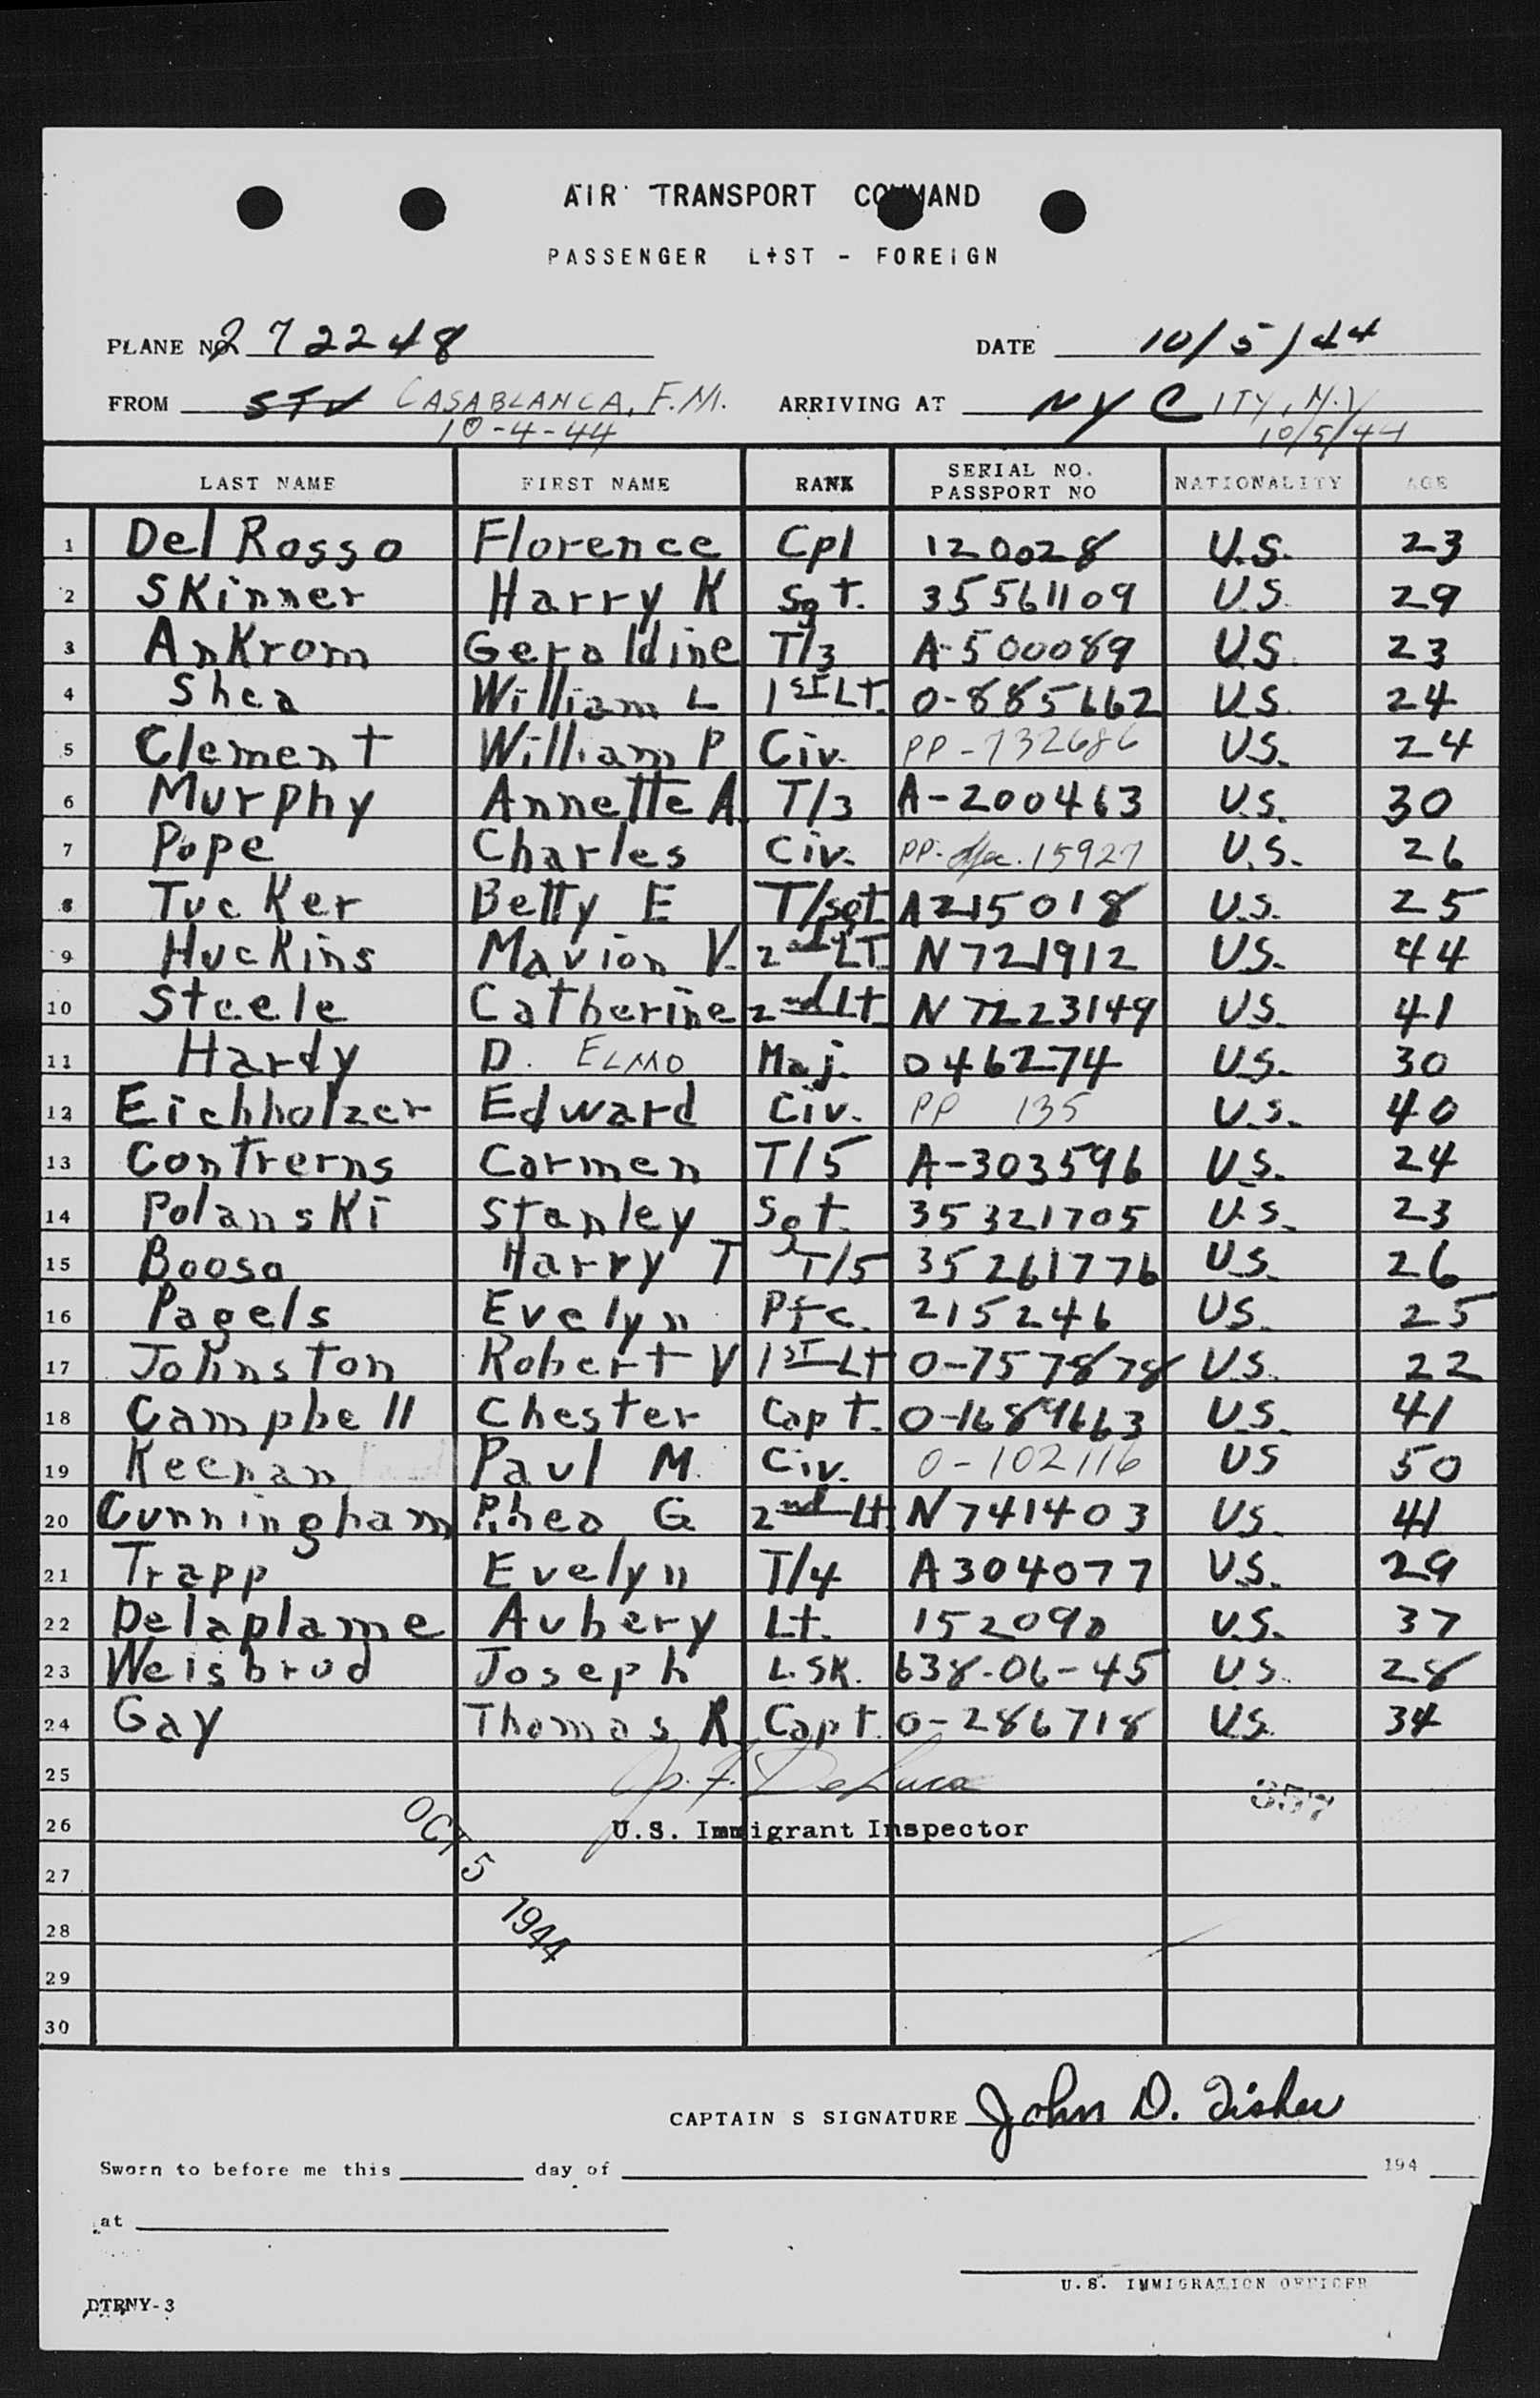 AIR TRANSPORT COMMAND
PASSENGER LIST - FOREIGN
PLANE NO. 272248 DATE 10/5/44
FROM STV CASABLANCA, F.M. ARRIVING AT NY CITY, N.Y
10-4-44 10/5/44
LAST NAME FIRST NAME RANK SERIAL NO. PASSPORT NO NATIONALITY AGE
1 Del Rosso Florence Cpl 120028 U.S. 23
2 Skinner Harry K Sgt. 35561109 U.S. 29
3 Ankrom Geraldine T/3 A-500089 U.S. 23
4 Shea William L 1st Lt. 0-885662 U.S. 24
5 Clement William P Civ. PP-732686 U.S. 24
6 Murphy Annette A. T/3 A-200463 U.S. 30
7 Pope Charles Civ. PP- 15927 U.S. 26
8 Tucker Betty E T/sgt. A215018 U.S. 25
9 Huckins Marion V. 2nd LT. N721912 U.S. 44
10 Steele Catherine 2nd Lt. N 7223149 U.S. 41
11 Hardy D. ELMO Maj. 046274 U.S. 30
12 Eichholzer Edward Civ. PP 135 U.S. 40
13 Contrerns Carmen T/5 A-303596 U.S. 24
14 Polanski Stanley Sgt. 35321705 U.S. 23
15 Boosa Harry T T/5 35261776 U.S. 26
16 Pagels Evelyn Pfc. 215246 U.S. 25
17 Johnston Robert V 1st Lt 0-757878 U.S. 22
18 Campbell Chester Capt. 0-1689663 U.S. 41
19 Keenan Paul M. Civ. 0-102116 US 50
20 Cunningham Rhea G 2nd Lt. N741403 U.S. 41
21 Trapp Evelyn T/4 A304077 U.S. 29
22 Delaplame Aubery Lt. 152090 U.S. 37
23 Weisbrod Joseph L.SK. 638-06-45 U.S. 28
24 Gay Thomas R. Capt. 0-286718 U.S. 34
25 J. F. DeLuca 357
26 U.S. Immigrant Inspector
OCT 5 1944
27
28
29
30
CAPTAIN S SIGNATURE John D. Fisher
Sworn to before me this day of 194
at
U.S. IMMIGRATION OFFICER
DTRNY-3